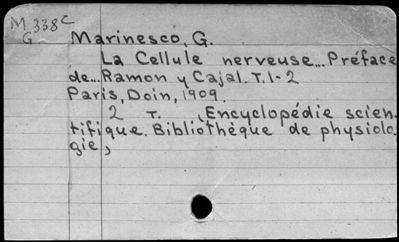 M 338c
G
Marinesco, G.
La Cellule nerveuse... Préface
de... Ramon y Cajal. T.1-2
Paris, Doin, 1909.
2 T. (Encyclopédie scien-
tifique. Bibliothèque de physiolo-
gie,